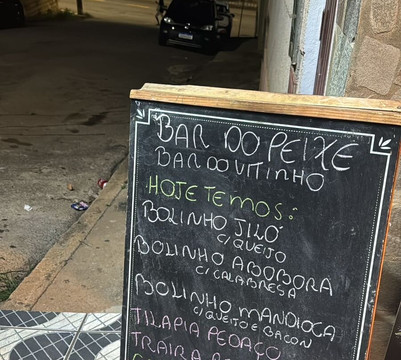 BAR DO PEIXE
BAR DO VITINHO
HOJE TEMOS:
BOLINHO JILÓ
C/ QUEIJO
BOLINHO ABOBORA
C/ CALABRESA
BOLINHO MANDIOCA
C/ QUEIJO E BACON
TILAPIA PEDAÇO
TRAIRA